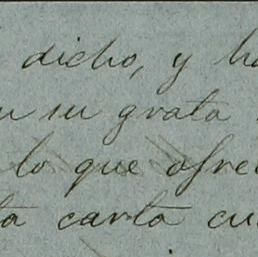 dicho, y ha
su grata
lo que ofre
ta carta cu